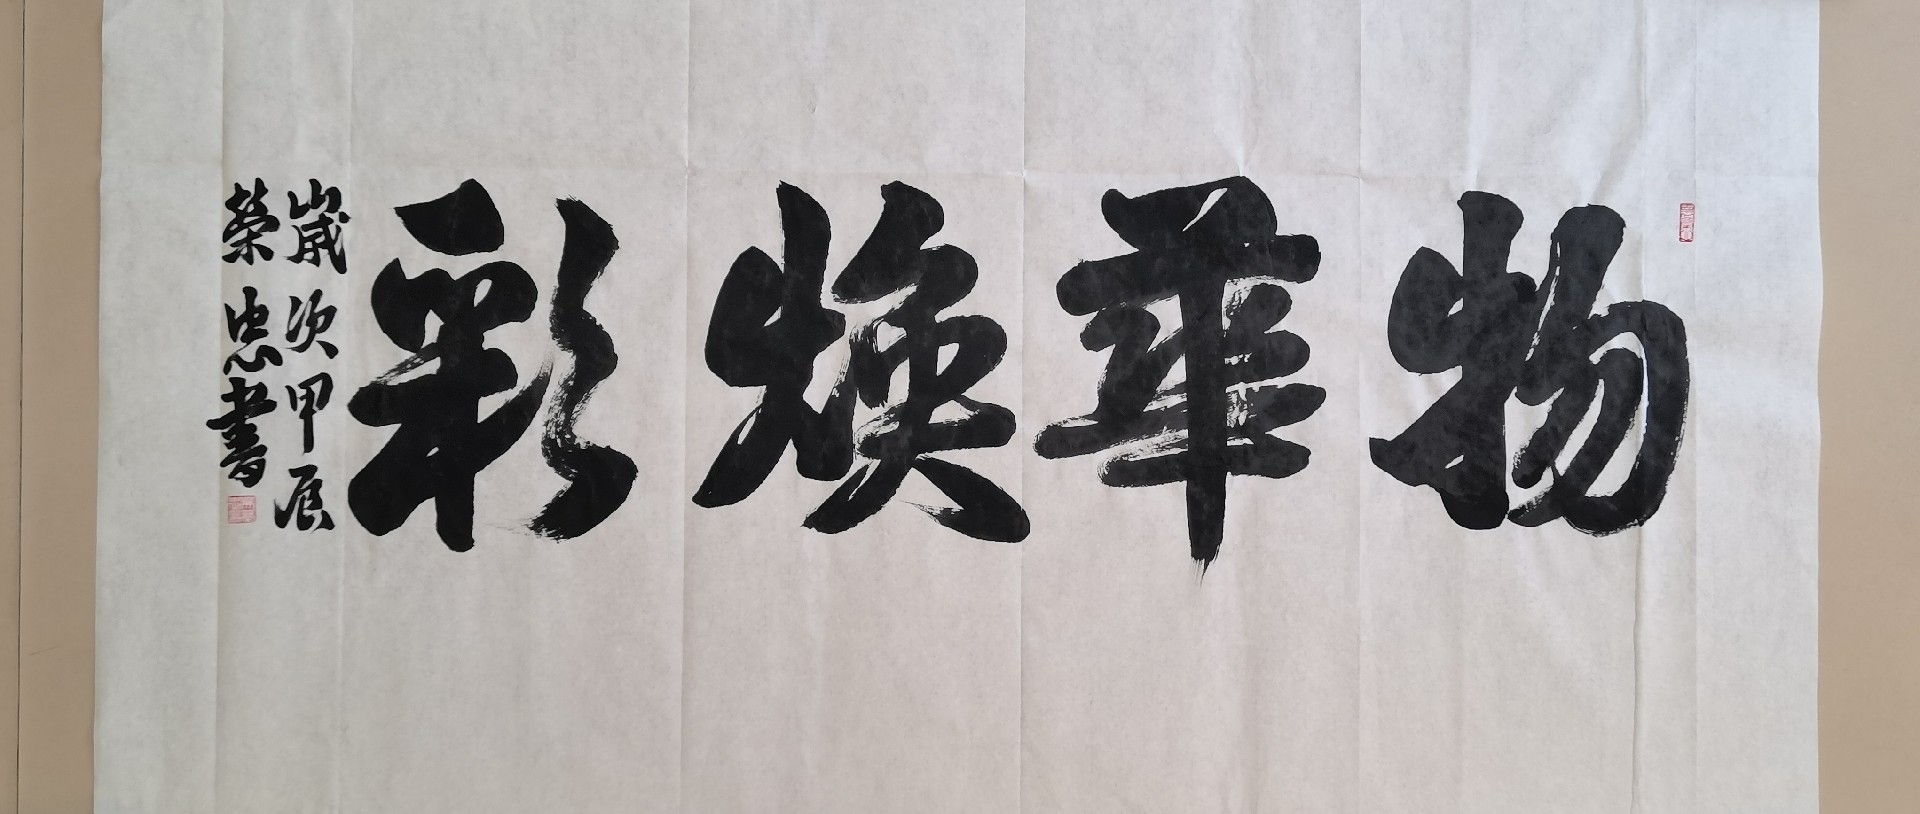 物華煥彩
歲次甲辰
榮忠書